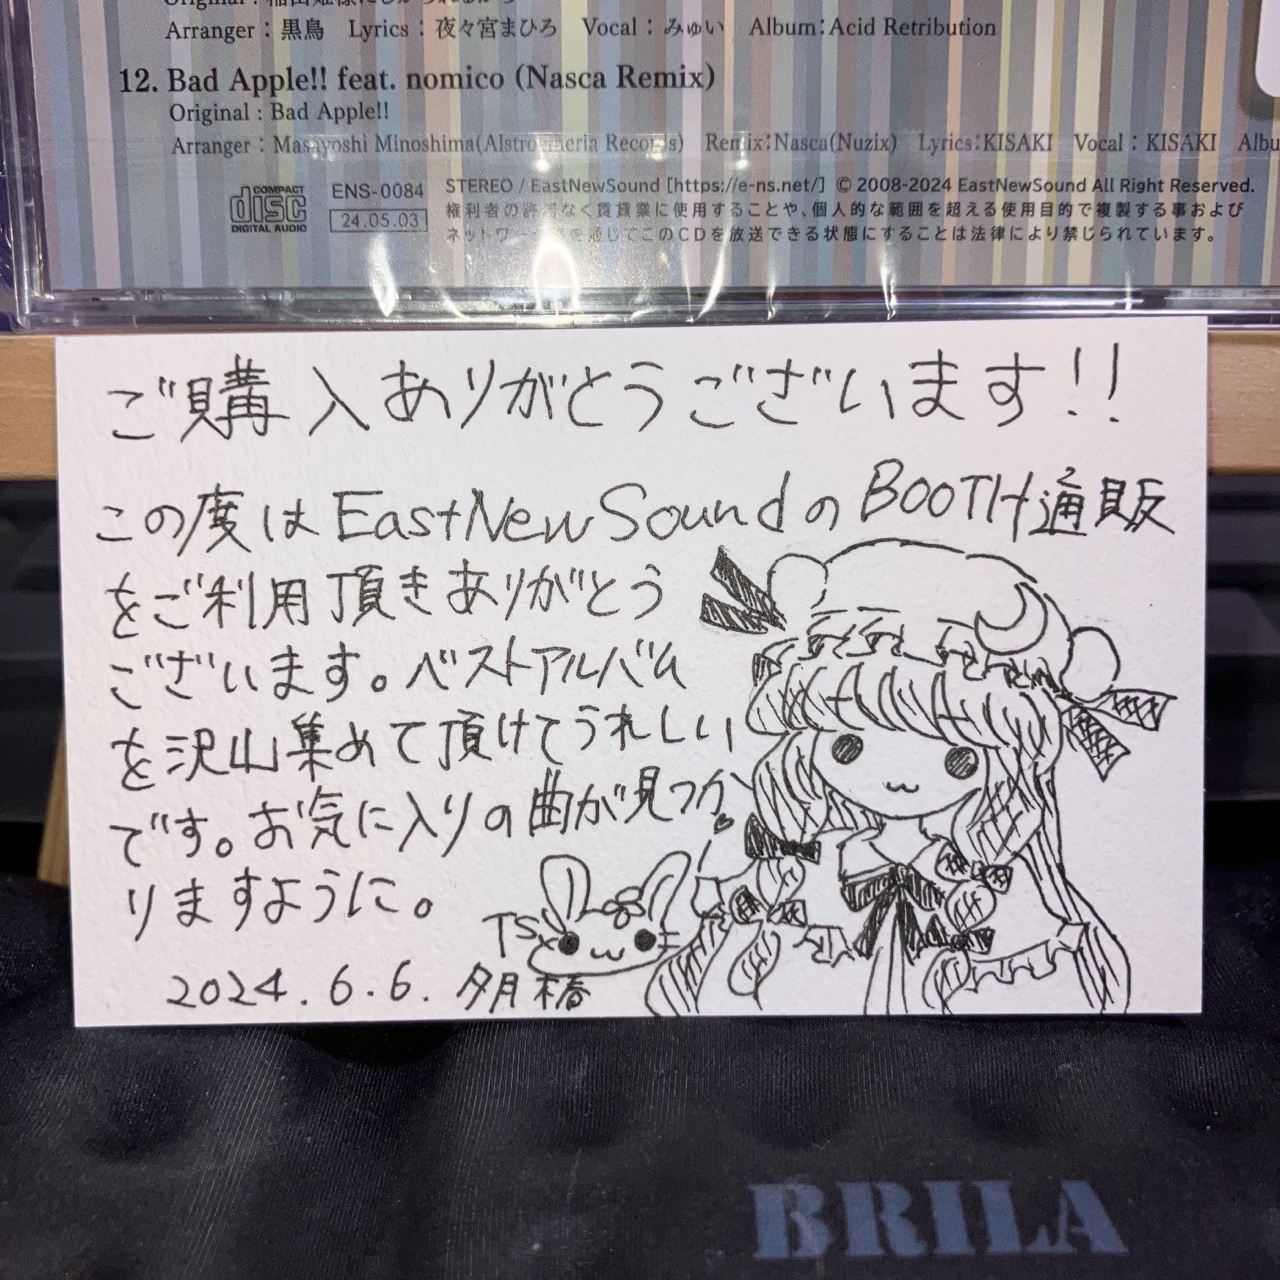 Arranger：黒鳥　Lyrics：夜々宮まひろ　Vocal：みゅい　Album：Acid Retribution
12. Bad Apple!! feat. nomico (Nasca Remix)
Original : Bad Apple!!
Arranger：Masayoshi Minoshima(Alstroemeria Records)　Remix：Nasca(Nuzix)　Lyrics：KISAKI　Vocal：KISAKI　Albu
COMPACT
disc
DIGITAL AUDIO
ENS-0084
24.05.03
STEREO / EastNewSound [https://e-ns.net/] © 2008-2024 EastNewSound All Right Reserved.
権利者の許諾なく賃貸業に使用することや、個人的な範囲を超える使用目的で複製する事および
ネットワーク等を通じてこのCDを放送できる状態にすることは法律により禁じられています。
ご購入ありがとうございます!!
この度はEastNewSoundのBOOTH通販
をご利用頂きありがとう
ございます。ベストアルバム
を沢山集めて頂けてうれしい
です。お気に入りの曲が見つか
りますように。
TS
2024.6.6. 夕月椿
BRILA